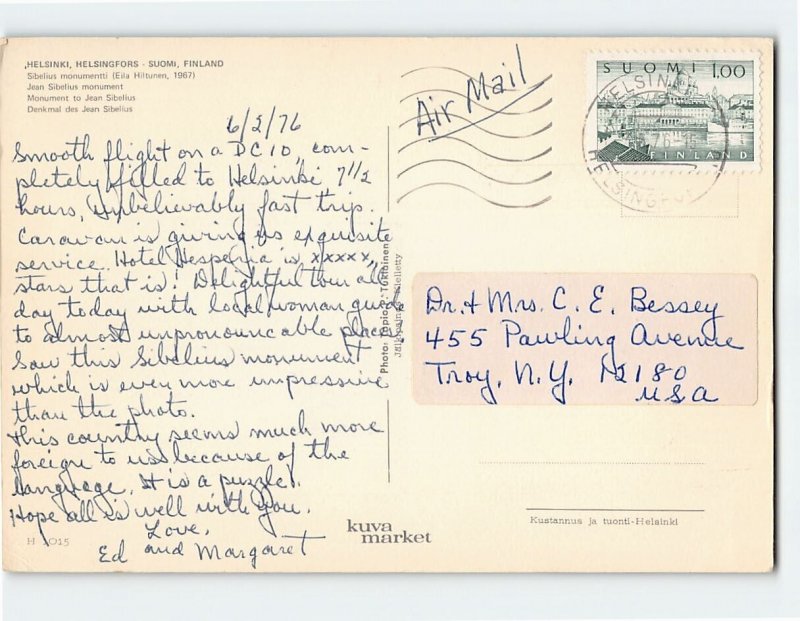 HELSINKI, HELSINGFORS - SUOMI, FINLAND
Sibelius monumentti (Eila Hiltunen, 1967)
Jean Sibelius monument
Monument to Jean Sibelius
Denkmal des Jean Sibelius
6/2/76
Smooth flight on a DC10, com-
pletely filled to Helsinki 7 1/2
hours, Unbelievably fast trip.
Caravan is giving us exquisite
service. Hotel Hesperia is xxxxx,
stars that is! Delightful tour all
day today with local woman guide
to almost unpronouncable places.
Saw this Sibelius monument
which is even more impressive
than the photo.
This country seems much more
foreign to us because of the
language. It is a puzzle!
Hope all is well with you.
Love,
Ed and Margaret
H 1015
Photo:
Jälkipainos kielletty
kuva
market
Air Mail
SUOMI 1.00
FINLAND
HELSINKI
76-15
HELSINGFORS
Dr. & Mrs. C. E. Bessey
455 Pawling Avenue
Troy, N.Y. 12180
USA
Kustannus ja tuonti-Helsinki